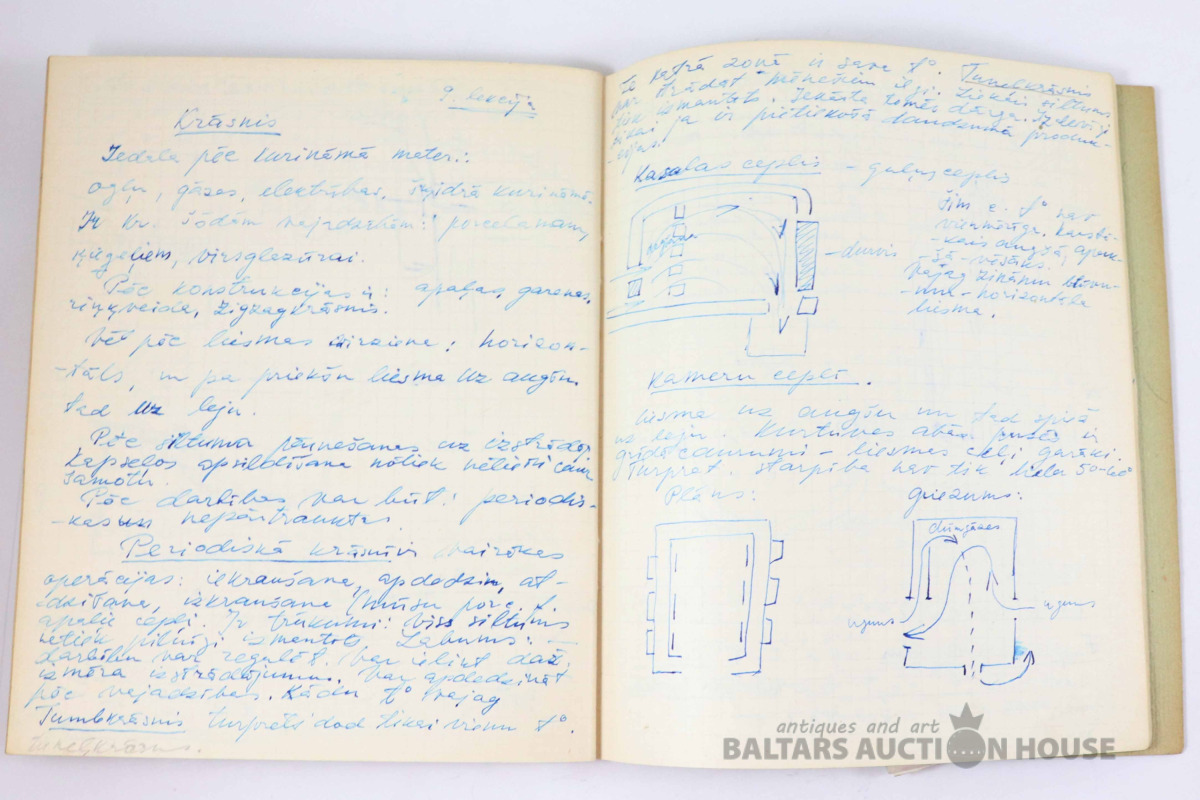 9. lekcija
Krāsnis
Iedala pēc kurināmā mater.:
ogļu, gāzes, elektrības, šķidrā kurināmā.
Ir kr. šādām vajadzībām: porcelanam,
ķieģeļiem, virsglazūrai.
Pēc konstrukcijas ir: apaļas, garenas,
riņķveida, zigzagkrāsnis.
Vēl pēc liesmas virziena: horizon-
-tāls, un pa priekšu liesma uz augšu
tad uz leju.
Pēc siltuma pārnešanas uz izstrādāj.
Kapselos apsildīšana notiek caur
šamotu.
Pēc darbības var būt: periodis-
-kas un nepārtrauktas.
Periodiskā krāsnīs vairākas
operācijas: iekraušana, apdedzin, at-
dzišana, izkraušana (mūsu porc. f.
apaļie cepļi. Ir trūkumi: viss siltums
netiek pilnīgi izmantots. Labums:
darbību var regulēt. Var ielikt daž.
izmēra izstrādājumus. Var apdedzināt
pēc vajadzības. Kādu t° vajag
Tuneļkrāsnis turpretī dod tikai vienu t°.
Tuneļkrāsns.
Te katrā zonā ir sava t°. Tuneļkrāsnis
var strādāt mēnešiem ilgi. Liekais siltums
tiek izmantots. Iekārta tomēr dārga. Izdevīgi
tikai ja ir pietiekošā daudzumā produk-
-cijas.
Kaseles ceplis - guļus ceplis
Šim c. t° nav
vienmērīga. karstā-
-kais augšā, apak-
-šā - vēsāks.
Vajag zināmu
liesma.
- horizontāla
- durvis
Kameru cepļi.
Liesma uz augšu un tad spiež
uz leju. Kurtuves abās pusēs ir
grīdā caurumi - liesmas ceļi garāki.
Turpret. starpība nav tik liela 50-60°
Plāns: Griezums:
dūmgāzes
uguns uguns
antiques and art
BALTARS AUCTION HOUSE